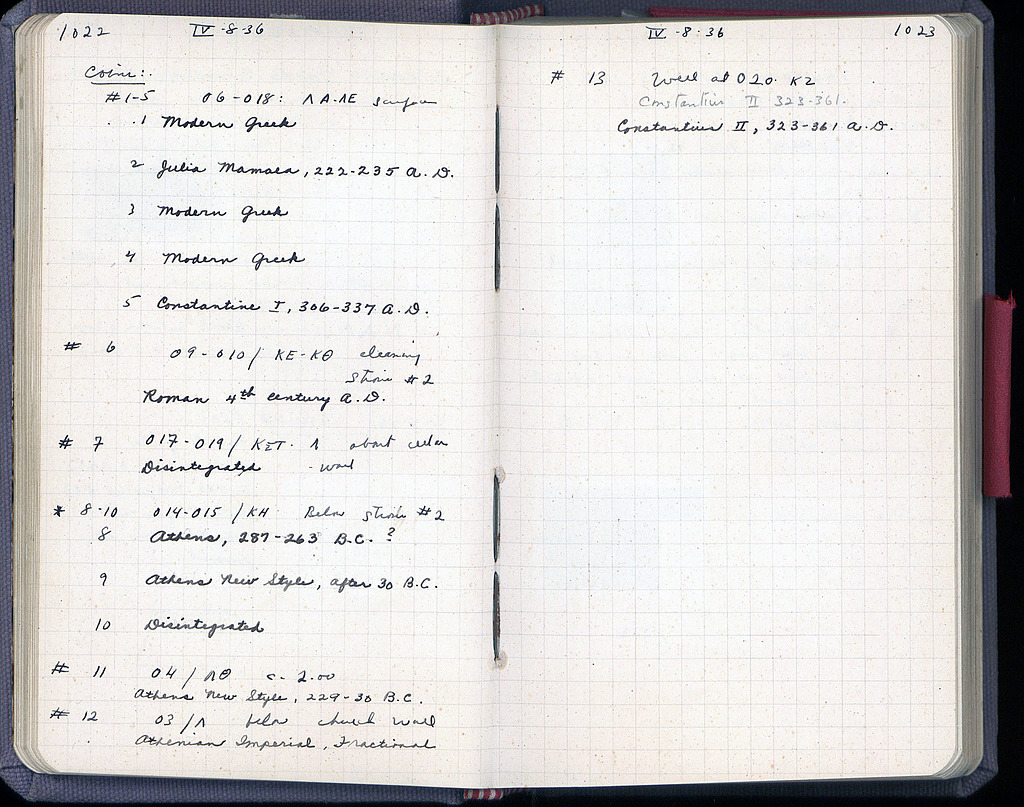 1022 IV-8-36
Coins:.
#1-5 06-018: ΛΑ-ΛΕ surface
.1 Modern Greek
2 Julia Mamaea, 222-235 A.D.
3 Modern Greek
4 Modern Greek
5 Constantine I, 306-337 A.D.
# 6 09-010/ ΚΕ-ΚΘ cleaning
#2
Roman 4th century A.D.
# 7 017-019/ Λ about
Disintegrated wall
* 8-10 014-015 /ΚΗ Below #2
8 Athens, 287-263 B.C. ?
9 Athens New Style, after 30 B.C.
10 Disintegrated
# 11 04/ΛΘ c-2.00
Athens New Style, 229-30 B.C.
# 12 03/Λ below church wall
Athenian Imperial, Fractional
IV-8-36 1023
# 13 Well at 020. K2
Constantius II 323-361.
Constantius II, 323-361 A.D.